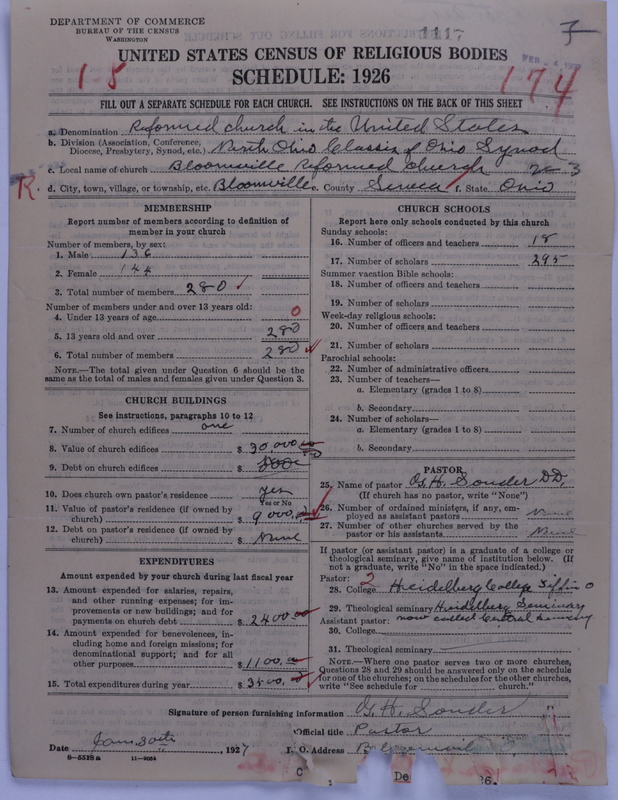 DEPARTMENT OF COMMERCE
BUREAU OF THE CENSUS
WASHINGTON
1117
UNITED STATES CENSUS OF RELIGIOUS BODIES
SCHEDULE: 1926
1-8
174
FILL OUT A SEPARATE SCHEDULE FOR EACH CHURCH. SEE INSTRUCTIONS ON THE BACK OF THIS SHEET
a. Denomination Reformed church in the United States
b. Division (Association, Conference, Diocese, Presbytery, Synod, etc.) North Ohio Classis of Ohio Synod
c. Local name of church Bloomville Reformed Church
R. d. City, town, village, or township, etc. Bloomville e. County Seneca f. State Ohio
MEMBERSHIP
Report number of members according to definition of
member in your church
Number of members, by sex:
1. Male 136
2. Female 144
3. Total number of members 280
Number of members under and over 13 years old:
4. Under 13 years of age 0
5. 13 years old and over 280
6. Total number of members 280
NOTE.—The total given under Question 6 should be
same as the total of males and females given under Question 3.
CHURCH BUILDINGS
See instructions, paragraphs 10 to 12
7. Number of church edifices one
8. Value of church edifices $ 30,000.00
9. Debt on church edifices $
10. Does church own pastor's residence yes
Yes or No
11. Value of pastor's residence (if owned by
church) $ 9000.
12. Debt on pastor's residence (if owned by
church) $ None
EXPENDITURES
Amount expended by your church during last fiscal year
13. Amount expended for salaries, repairs,
and other running expenses; for im-
provements or new buildings; and for
payments on church debt $ 2400.00
14. Amount expended for benevolences, in-
cluding home and foreign missions; for
denominational support; and for all
other purposes $ 1100.00
15. Total expenditures during year $ 3500.
CHURCH SCHOOLS
Report here only schools conducted by this church
Sunday schools:
16. Number of officers and teachers 18
17. Number of scholars 295
Summer vacation Bible schools:
18. Number of officers and teachers
19. Number of scholars
Week-day religious schools:
20. Number of officers and teachers
21. Number of scholars
Parochial schools:
22. Number of administrative officers
23. Number of teachers—
a. Elementary (grades 1 to 8)
b. Secondary
24. Number of scholars—
a. Elementary (grades 1 to 8)
b. Secondary
PASTOR
25. Name of pastor G. H. Souder DD,
(If church has no pastor, write "None")
26. Number of ordained ministers, if any, em-
ployed as assistant pastors None
27. Number of other churches served by the
pastor or his assistants None
If pastor (or assistant pastor) is a graduate of a college or
theological seminary, give name of institution below. (If
not a graduate, write "No" in the space indicated.)
Pastor: 2
28. College Heidelberg College Tiffin O
29. Theological seminary Heidelberg Seminary
Assistant pastor: now called Central Seminary
30. College
31. Theological seminary
NOTE.—Where one pastor serves two or more churches,
Questions 28 and 29 should be answered only on the schedule
for one of the churches; on the schedules for the other churches,
write "See schedule for church."
Signature of person furnishing information G. H. Souder
Official title Pastor
Date Jan. 30th, 1927 P. O. Address
8—5518a 11—9054